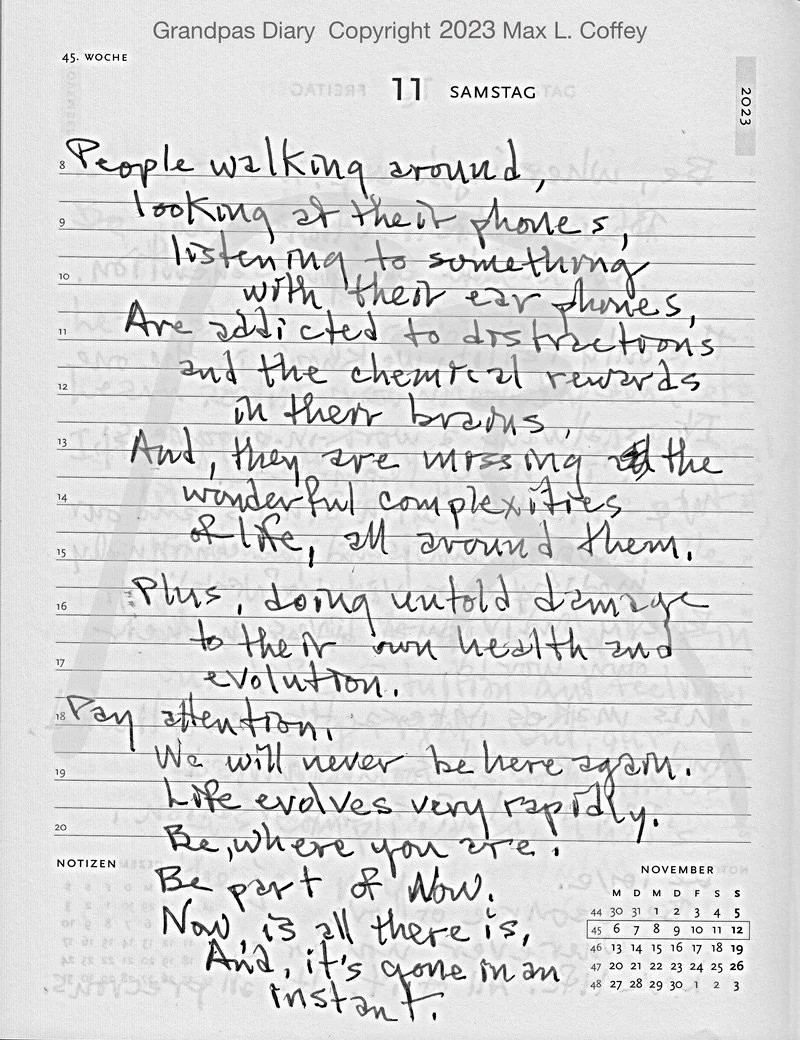 Grandpas Diary Copyright 2023 Max L. Coffey
45. WOCHE
11 SAMSTAG
2023
8 People walking around,
looking at their phones,
9
listening to something
10
with their ear phones,
11 Are addicted to distractions
and the chemical rewards
12
in their brains.
13 And, they are missing the
wonderful complexities
14
of life, all around them.
15
Plus, doing untold damage
16
to their own health and
17
evolution.
18 Pay attention.
We will never be here again.
19
Life evolves very rapidly.
20
Be, where you are.
NOTIZEN
Be part of Now.
Now, is all there is,
And, it's gone in an
instant.
NOVEMBER
M D M D F S S
44 30 31 1 2 3 4 5
45 6 7 8 9 10 11 12
46 13 14 15 16 17 18 19
47 20 21 22 23 24 25 26
48 27 28 29 30 1 2 3